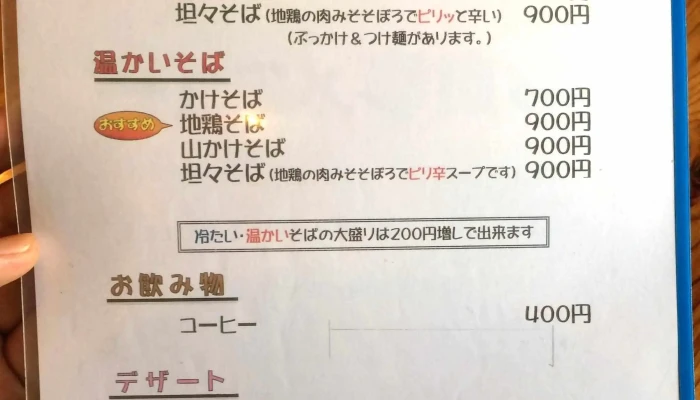 坦々そば(地鶏の肉みそそぼろでピリッと辛い) 900円
(ぶっかけ&つけ麺があります。)
温かいそば
かけそば 700円
おすすめ 地鶏そば 900円
山かけそば 900円
坦々そば(地鶏の肉みそそぼろでピリ辛スープです) 900円
冷たい・温かいそばの大盛りは200円増しで出来ます
お飲み物
コーヒー 400円
デザート